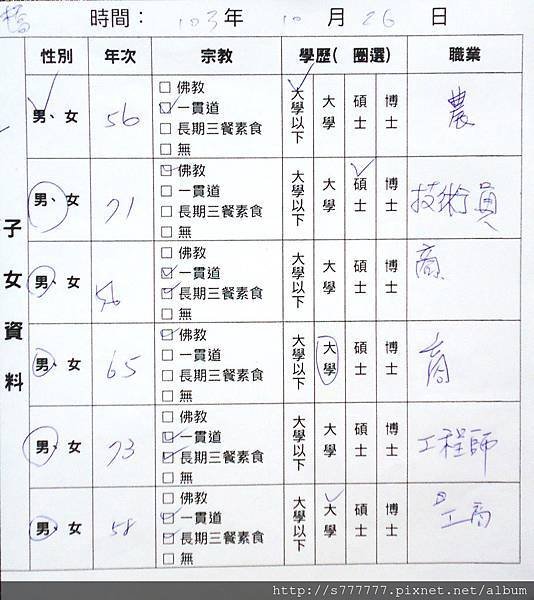 時間： 103年 10 月 26 日
子女資料
性別 年次 宗教 學歷( 圈選) 職業
男、女 56 □ 佛教 大學以下 大學 碩士 博士 農
□ 一貫道
□ 長期三餐素食
□ 無
男、女 71 □ 佛教 大學以下 大學 碩士 博士 技術員
□ 一貫道
□ 長期三餐素食
□ 無
男、女 □ 佛教 大學以下 大學 碩士 博士 商
□ 一貫道
□ 長期三餐素食
□ 無
男、女 65 □ 佛教 大學以下 大學 碩士 博士 商
□ 一貫道
□ 長期三餐素食
□ 無
男、女 73 □ 佛教 大學以下 大學 碩士 博士 工程師
□ 一貫道
□ 長期三餐素食
□ 無
男、女 58 □ 佛教 大學以下 大學 碩士 博士 工商
□ 一貫道
□ 長期三餐素食
□ 無
http://s777777.pixnet.net/album